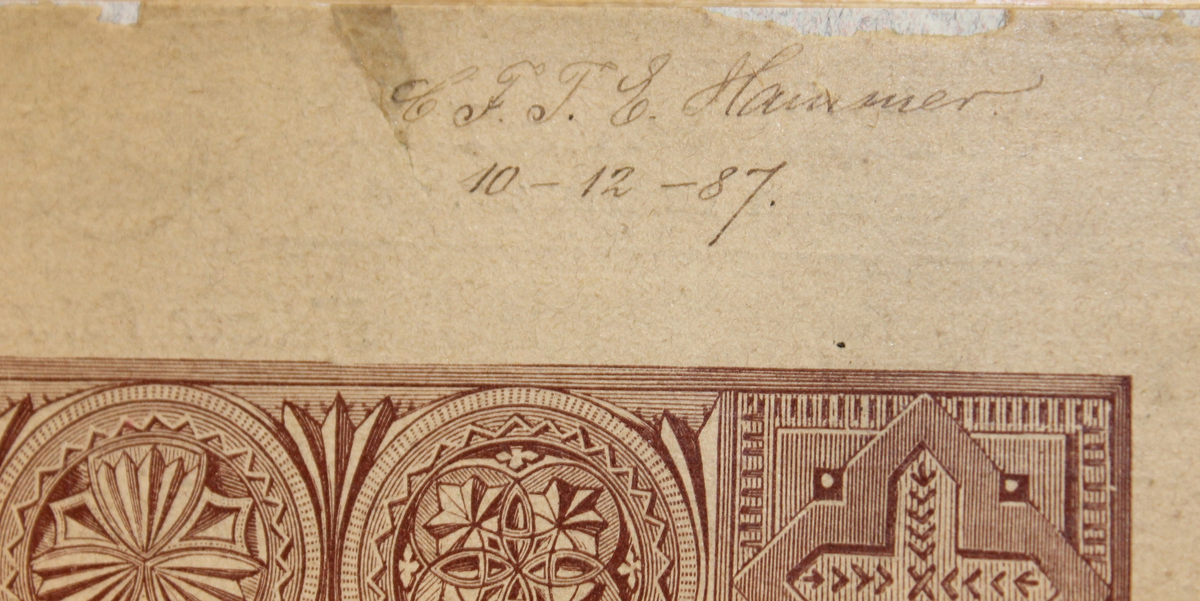 C. F. T. E. Hammer.
10 - 12 - 87.